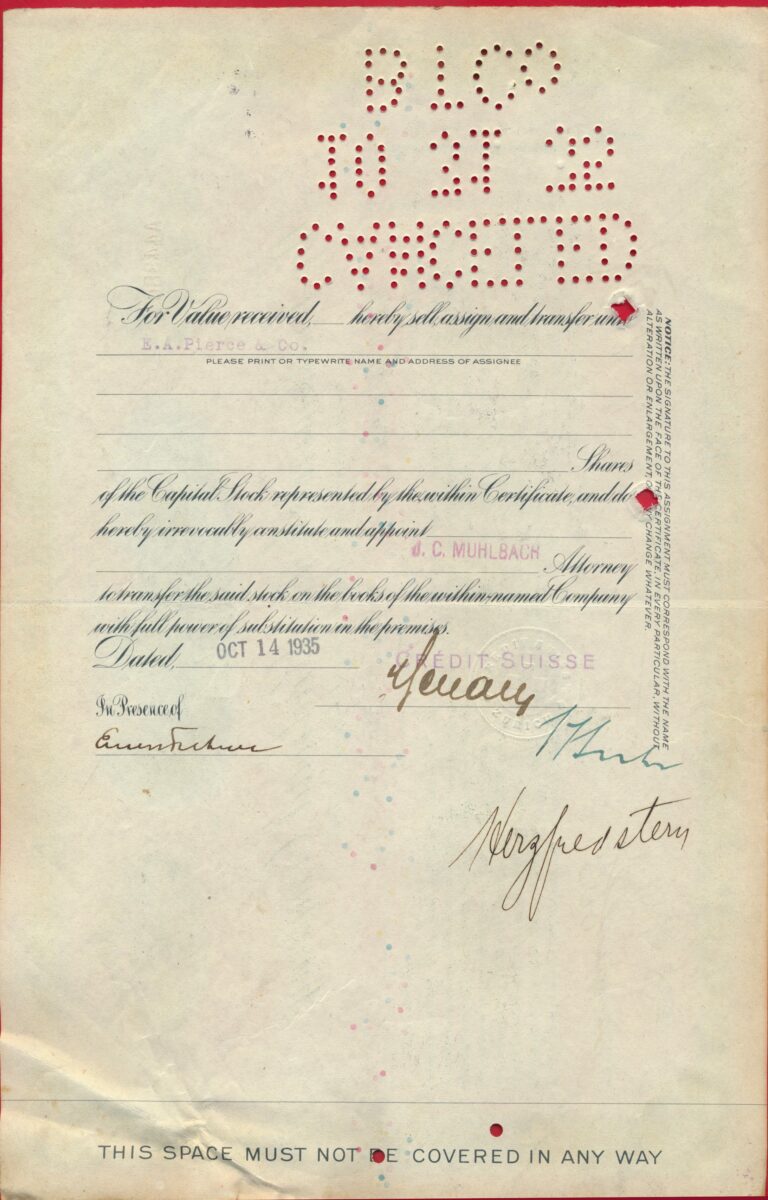 B T Co
10 21 35
CANCELLED
For Value received, hereby sell, assign and transfer unto
E.A.Pierce & Co.
PLEASE PRINT OR TYPEWRITE NAME AND ADDRESS OF ASSIGNEE
Shares
of the Capital Stock represented by the within Certificate, and do
hereby irrevocably constitute and appoint
J. C. MUHLBACH
Attorney
to transfer the said stock on the books of the within-named Company
with full power of substitution in the premises.
Dated, OCT 14 1935
CRÉDIT SUISSE
In Presence of
Herzfeld stern
NOTICE: THE SIGNATURE TO THIS ASSIGNMENT MUST CORRESPOND WITH THE NAME
AS WRITTEN UPON THE FACE OF THE CERTIFICATE, IN EVERY PARTICULAR, WITHOUT
ALTERATION OR ENLARGEMENT, OR ANY CHANGE WHATEVER.
THIS SPACE MUST NOT BE COVERED IN ANY WAY